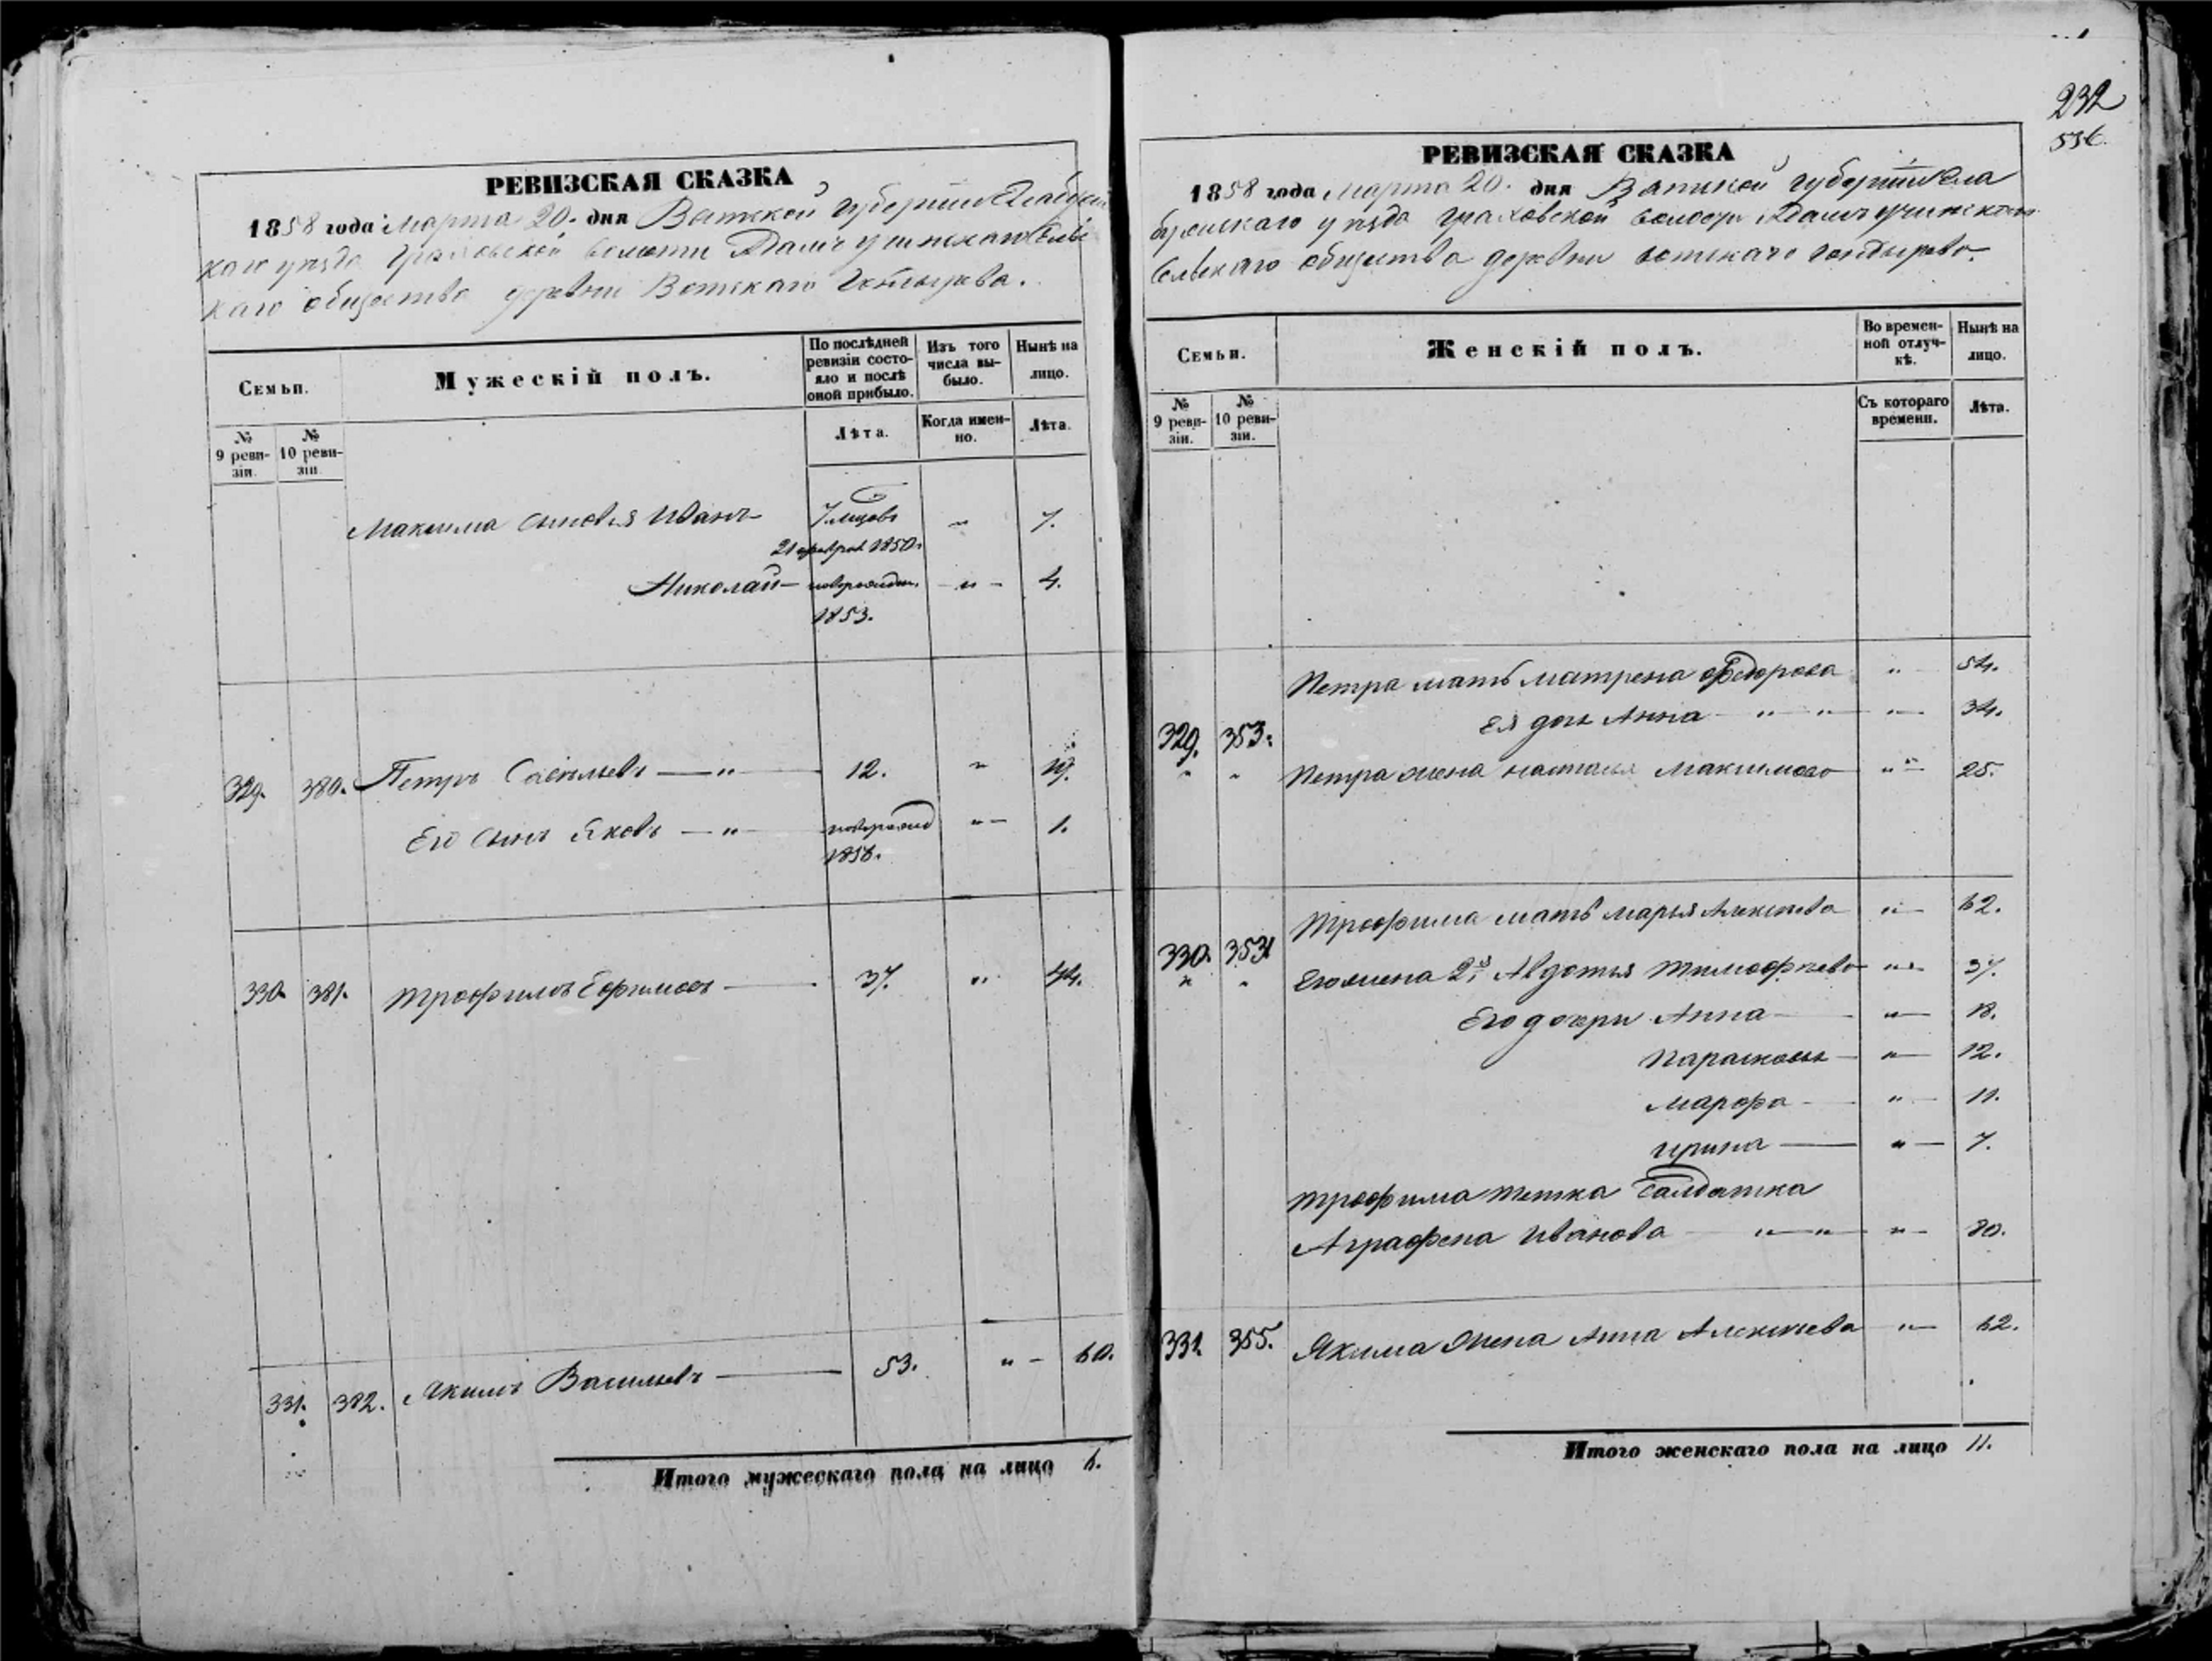 232
536.
РЕВИЗСКАЯ СКАЗКА
1858 года Марта 20. дня Вятской губерніи Елабуж
каго уѣзда Граховской волости сельс
каго общества деревни Вотскаго Гондырева.
Семьи.
Мужескій полъ.
По послѣдней ревизіи состояло и послѣ оной прибыло.
Изъ того числа выбыло.
Нынѣ на лицо.
№ 9 ревизіи.
№ 10 ревизіи.
Лѣта.
Когда именно.
Лѣта.
Максима сыновья Иванъ — „ 7.
21 1850.
Николай — новорожден. — „ — 4.
1853.
329. 380. Петръ Савельевъ — „ — 12. „ 19.
Его сынъ Яковъ — „ — новорожд „ — 1.
1856.
330. 381. Трофимъ Ефимовъ — 37. „ 44.
331. 382. Якимъ Васильевъ — 53. „ — 60.
Итого мужескаго пола на лицо 6.
РЕВИЗСКАЯ СКАЗКА
1858 года Марта 20. дня Вятской губерніи Ела
бужскаго уѣзда Граховской волости
сельскаго общества деревни вотскаго гондырева.
Семьи.
Женскій полъ.
Во временной отлучкѣ.
Нынѣ на лицо.
№ 9 ревизіи.
№ 10 ревизіи.
Съ котораго времени.
Лѣта.
Петра мать Матрена Федорова „ 54.
Ея дочь Анна — „ — „ — „ — 34.
329. 353.
„ „ Петра жена Настасья Максимова — „ — 25.
Трофима мать Марья Алексѣева „ — 62.
330. 353
„ „ Его жена 2я Авдотья Тимофѣева „ — 37.
Его дочери Анна — „ — 18.
Парасковья — „ — 12.
Марфа — „ — 11.
Ирина — „ — 7.
Трофима тетка Салдатка
Аграфена Иванова — „ — „ — „ — 80.
331. 355. Якима жена Анна Алексѣева „ — 62.
Итого женскаго пола на лицо 11.